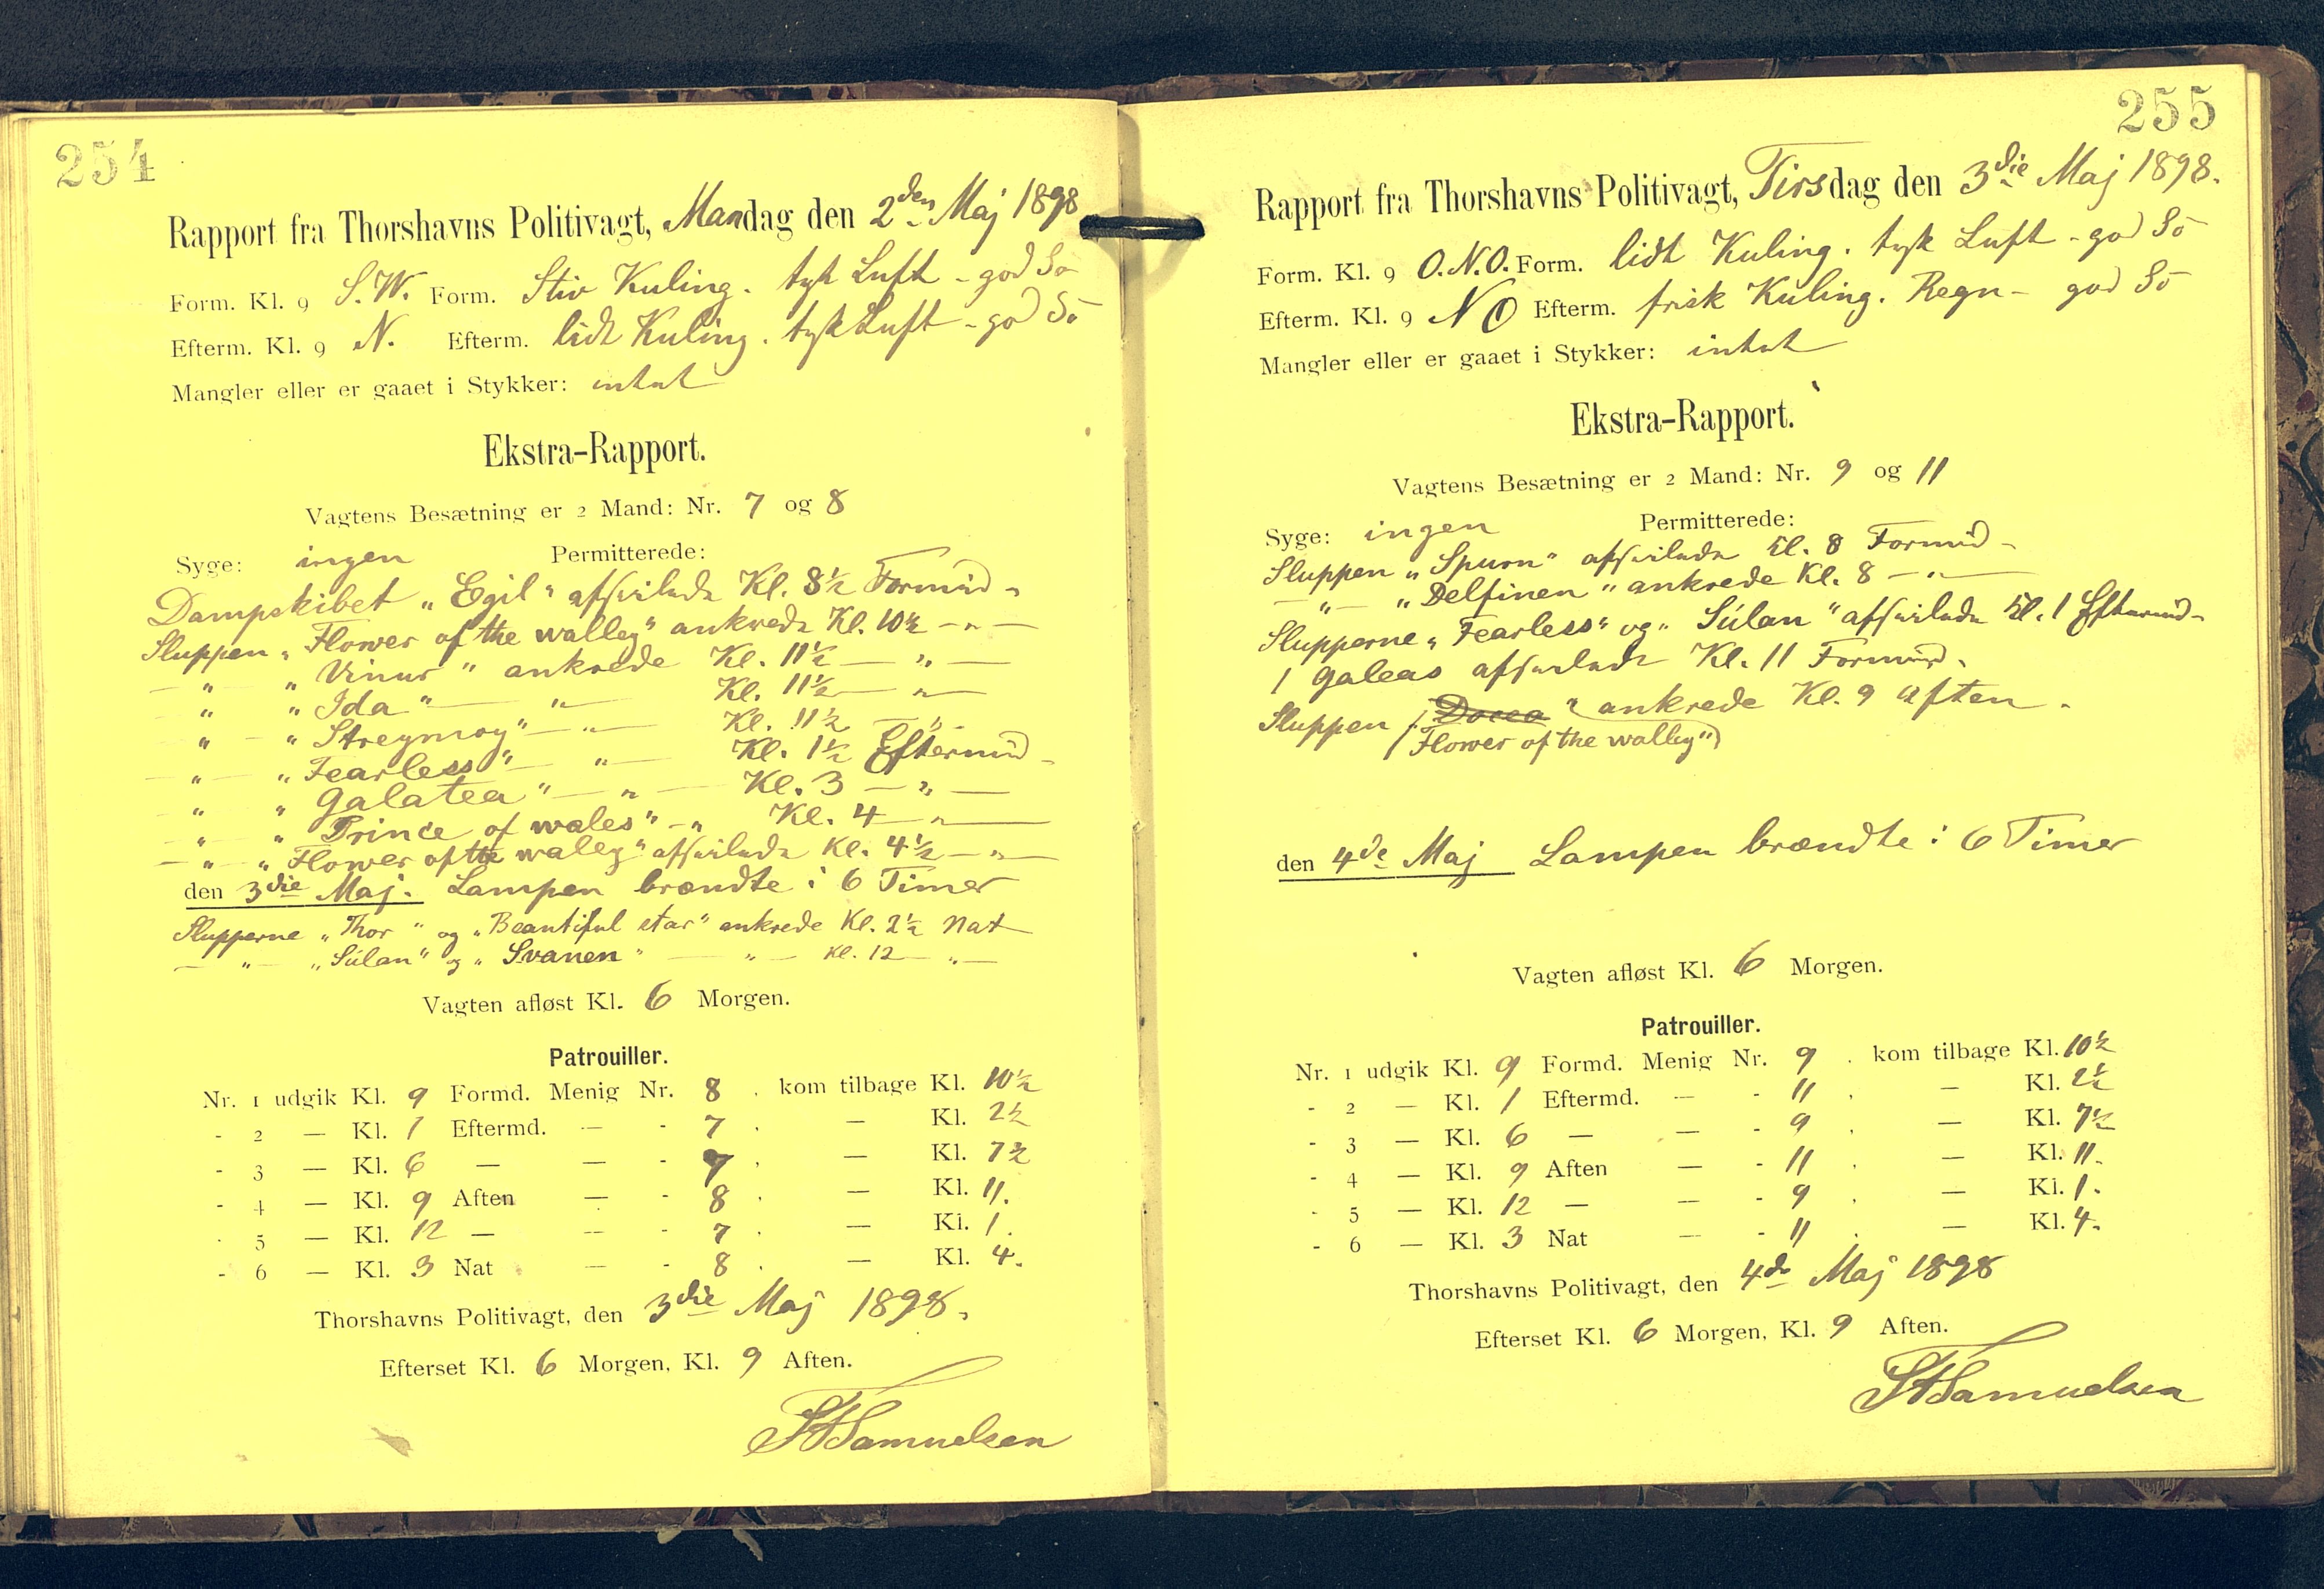 254
Rapport fra Thorshavns Politivagt, Mandag den 2den Maj 1898
Form. Kl. 9 S.W. Form. Stiv Kuling. tyk Luft - god Sö
Efterm. Kl. 9 N. Efterm. lidt Kuling. tyk Luft - god Sö
Mangler eller er gaaet i Stykker: intet
Ekstra-Rapport.
Vagtens Besætning er 2 Mand: Nr. 7 og 8
Syge: ingen Permitterede:
Dampskibet „Egil" afseilede Kl. 8½ Formid -
Sluppen „Flower of the walley" ankrede Kl. 10½ - „ -
- „ - „Vinur" ankrede Kl. 11½ - „ -
„ „Ida" - „ - Kl. 11½ - „ -
„ - „Streymoy" - „ - Kl. 11½ - „ -
- „ - „Fearless" - „ - Kl. 1½ Eftermid -
„ „Galatea" - „ - Kl. 3 - „ -
- „ - „Prince of wales" - „ Kl. 4 - „ -
- „ - „Flower of the walley" afseilede Kl. 4½ - „ -
den 3die Maj. Lampen brændte i 6 Timer
Slupperne „Thor" og „Beautiful star" ankrede Kl. 2½ Nat
- „ - „Súlan" og „Svanen" - „ - Kl. 12 - „ -
Vagten afløst Kl. 6 Morgen.
Patrouiller.
Nr. 1 udgik Kl. 9 Formd. Menig Nr. 8 . kom tilbage Kl. 10½
- 2 — Kl. 1 Eftermd. — - 7 . — Kl. 2½
- 3 — Kl. 6 — — - 7 . — Kl. 7½
- 4 — Kl. 9 Aften — - 8 . — Kl. 11.
- 5 — Kl. 12 — — - 7 . — Kl. 1.
- 6 — Kl. 3 Nat — - 8 . — Kl. 4.
Thorshavns Politivagt, den 3die Maj 1898.
Efterset Kl. 6 Morgen, Kl. 9 Aften.
Samuelsen
255
Rapport fra Thorshavns Politivagt, Tirsdag den 3die Maj 1898.
Form. Kl. 9 O.N.O. Form. lidt Kuling. tyk Luft - god Sö
Efterm. Kl. 9 NO Efterm. frisk Kuling. Regn - god Sö
Mangler eller er gaaet i Stykker: intet
Ekstra-Rapport.
Vagtens Besætning er 2 Mand: Nr. 9 og 11
Syge: ingen Permitterede:
Sluppen „Spurn" afseilede Kl. 8 Formid -
- „ - „Delfinen" ankrede Kl. 8 - „ -
Slupperne „Fearless" og „Súlan" afseilede Kl. 1 Eftermid -
1 Galeas afseilede Kl. 11 Formid.
Sluppen „Docea" ankrede Kl. 9 Aften.
(Flower of the walley")
den 4de Maj Lampen brændte i 6 Timer
Vagten afløst Kl. 6 Morgen.
Patrouiller.
Nr. 1 udgik Kl. 9 Formd. Menig Nr. 9 . kom tilbage Kl. 10½
- 2 — Kl. 1 Eftermd. — - 11 . — Kl. 2½
- 3 — Kl. 6 — — - 9 . — Kl. 7½
- 4 — Kl. 9 Aften — - 11 . — Kl. 11.
- 5 — Kl. 12 — — - 9 . — Kl. 1.
- 6 — Kl. 3 Nat — - 11 . — Kl. 4.
Thorshavns Politivagt, den 4de Maj 1898
Efterset Kl. 6 Morgen, Kl. 9 Aften.
Samuelsen